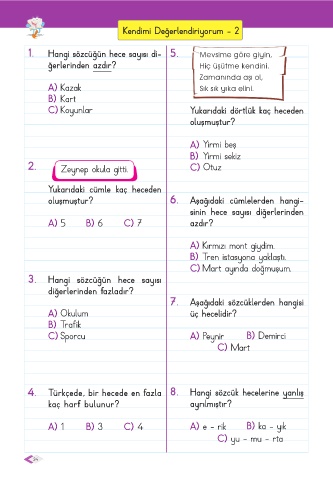 Kendimi Değerlendiriyorum - 2
1. Hangi sözcüğün hece sayısı di-
ğerlerinden azdır?
A) Kazak
B) Kart
C) Koyunlar
2. Zeynep okula gitti.
Yukarıdaki cümle kaç heceden
oluşmuştur?
A) 5 B) 6 C) 7
3. Hangi sözcüğün hece sayısı
diğerlerinden fazladır?
A) Okulum
B) Trafik
C) Sporcu
4. Türkçede, bir hecede en fazla
kaç harf bulunur?
A) 1 B) 3 C) 4
5. Mevsime göre giyin,
Hiç üşütme kendini.
Zamanında aşı ol,
Sık sık yıka elini.
Yukarıdaki dörtlük kaç heceden
oluşmuştur?
A) Yirmi beş
B) Yirmi sekiz
C) Otuz
6. Aşağıdaki cümlelerden hangi-
sinin hece sayısı diğerlerinden
azdır?
A) Kırmızı mont giydim.
B) Tren istasyona yaklaştı.
C) Mart ayında doğmuşum.
7. Aşağıdaki sözcüklerden hangisi
üç hecelidir?
A) Peynir B) Demirci
C) Mart
8. Hangi sözcük hecelerine yanlış
ayrılmıştır?
A) e - rik B) ka - yık
C) yu - mu - rta